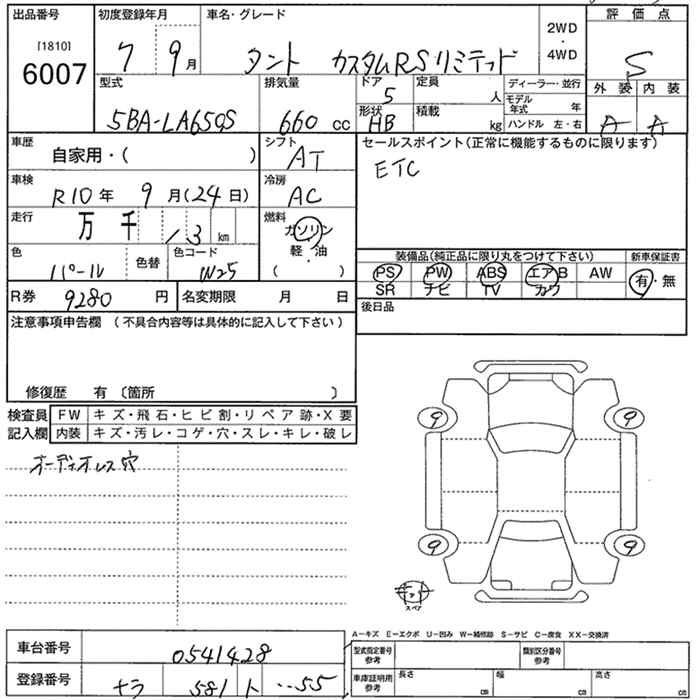 出品番号 初度登録年月 車名・グレード 2WD・4WD 評価点
[1810] 6007 7 9月 タント カスタムRSリミテッド S
型式 排気量 ドア 5 定員 人 ディーラー・並行 外装 内装
5BA-LA650S 660 cc 形状 HB 積載 kg モデル年式 年 A A
ハンドル 左・右
車歴 自家用・( ) シフト AT セールスポイント(正常に機能するものに限ります)
ETC
車検 R10年 9月(24日) 冷房 AC
走行 万 千 13 km 燃料 ガソリン 軽・油 ( )
色 パール 色替 色コード W25
装備品(純正品に限り丸をつけて下さい) 新車保証書
PS PW ABS エアB AW 有・無
SR ナビ TV カワ
R券 9280円 名変期限 月 日 後日品
注意事項申告欄 (不具合内容等は具体的に記入して下さい)
修復歴 有 〔箇所 〕
検査員記入欄 FW キズ・飛石・ヒビ割・リペア跡・X要
内装 キズ・汚レ・コゲ・穴・スレ・キレ・破レ
オーディオレス穴
9 9
9 9
スペア
A-キズ E-エクボ U-凹み W-補修跡 S-サビ C-腐食 XX-交換済
車台番号 0541428 型式指定番号参考 類別区分番号参考
登録番号 ナラ 581 ト ・・55 車庫証明用参考 長さ cm 幅 cm 高さ cm